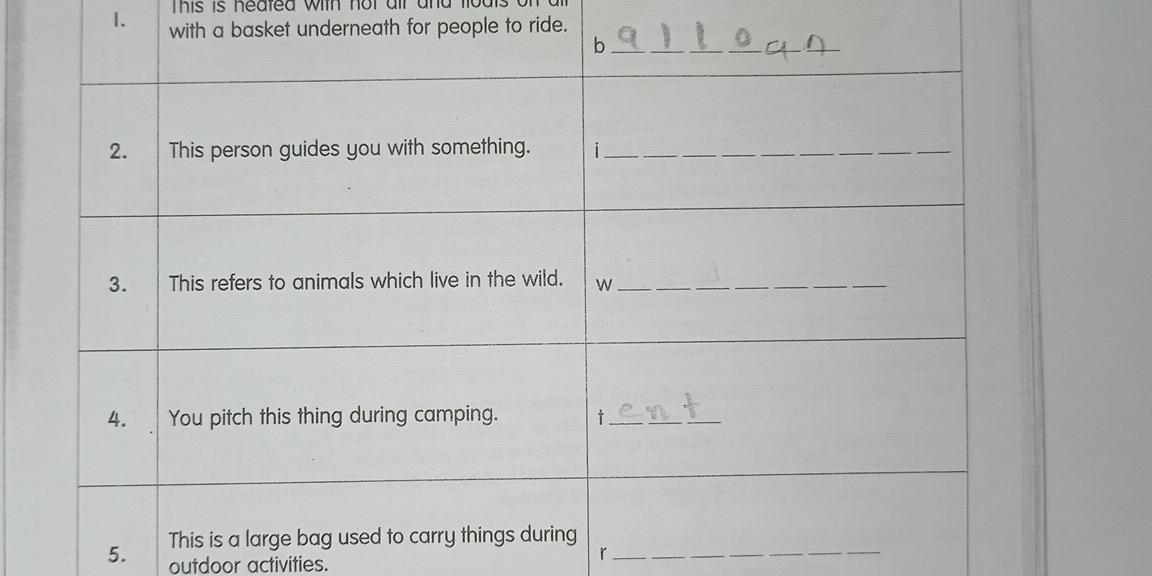 This is heated with hot air and floats on air
1.
with a basket underneath for people to ride.
b a l l o a n
2. This person guides you with something. i _ _ _ _ _ _ _ _ _
3. This refers to animals which live in the wild. w _ _ _ _ _ _ _
4. You pitch this thing during camping. t e n t
This is a large bag used to carry things during
5. r _ _ _ _ _ _ _
outdoor activities.